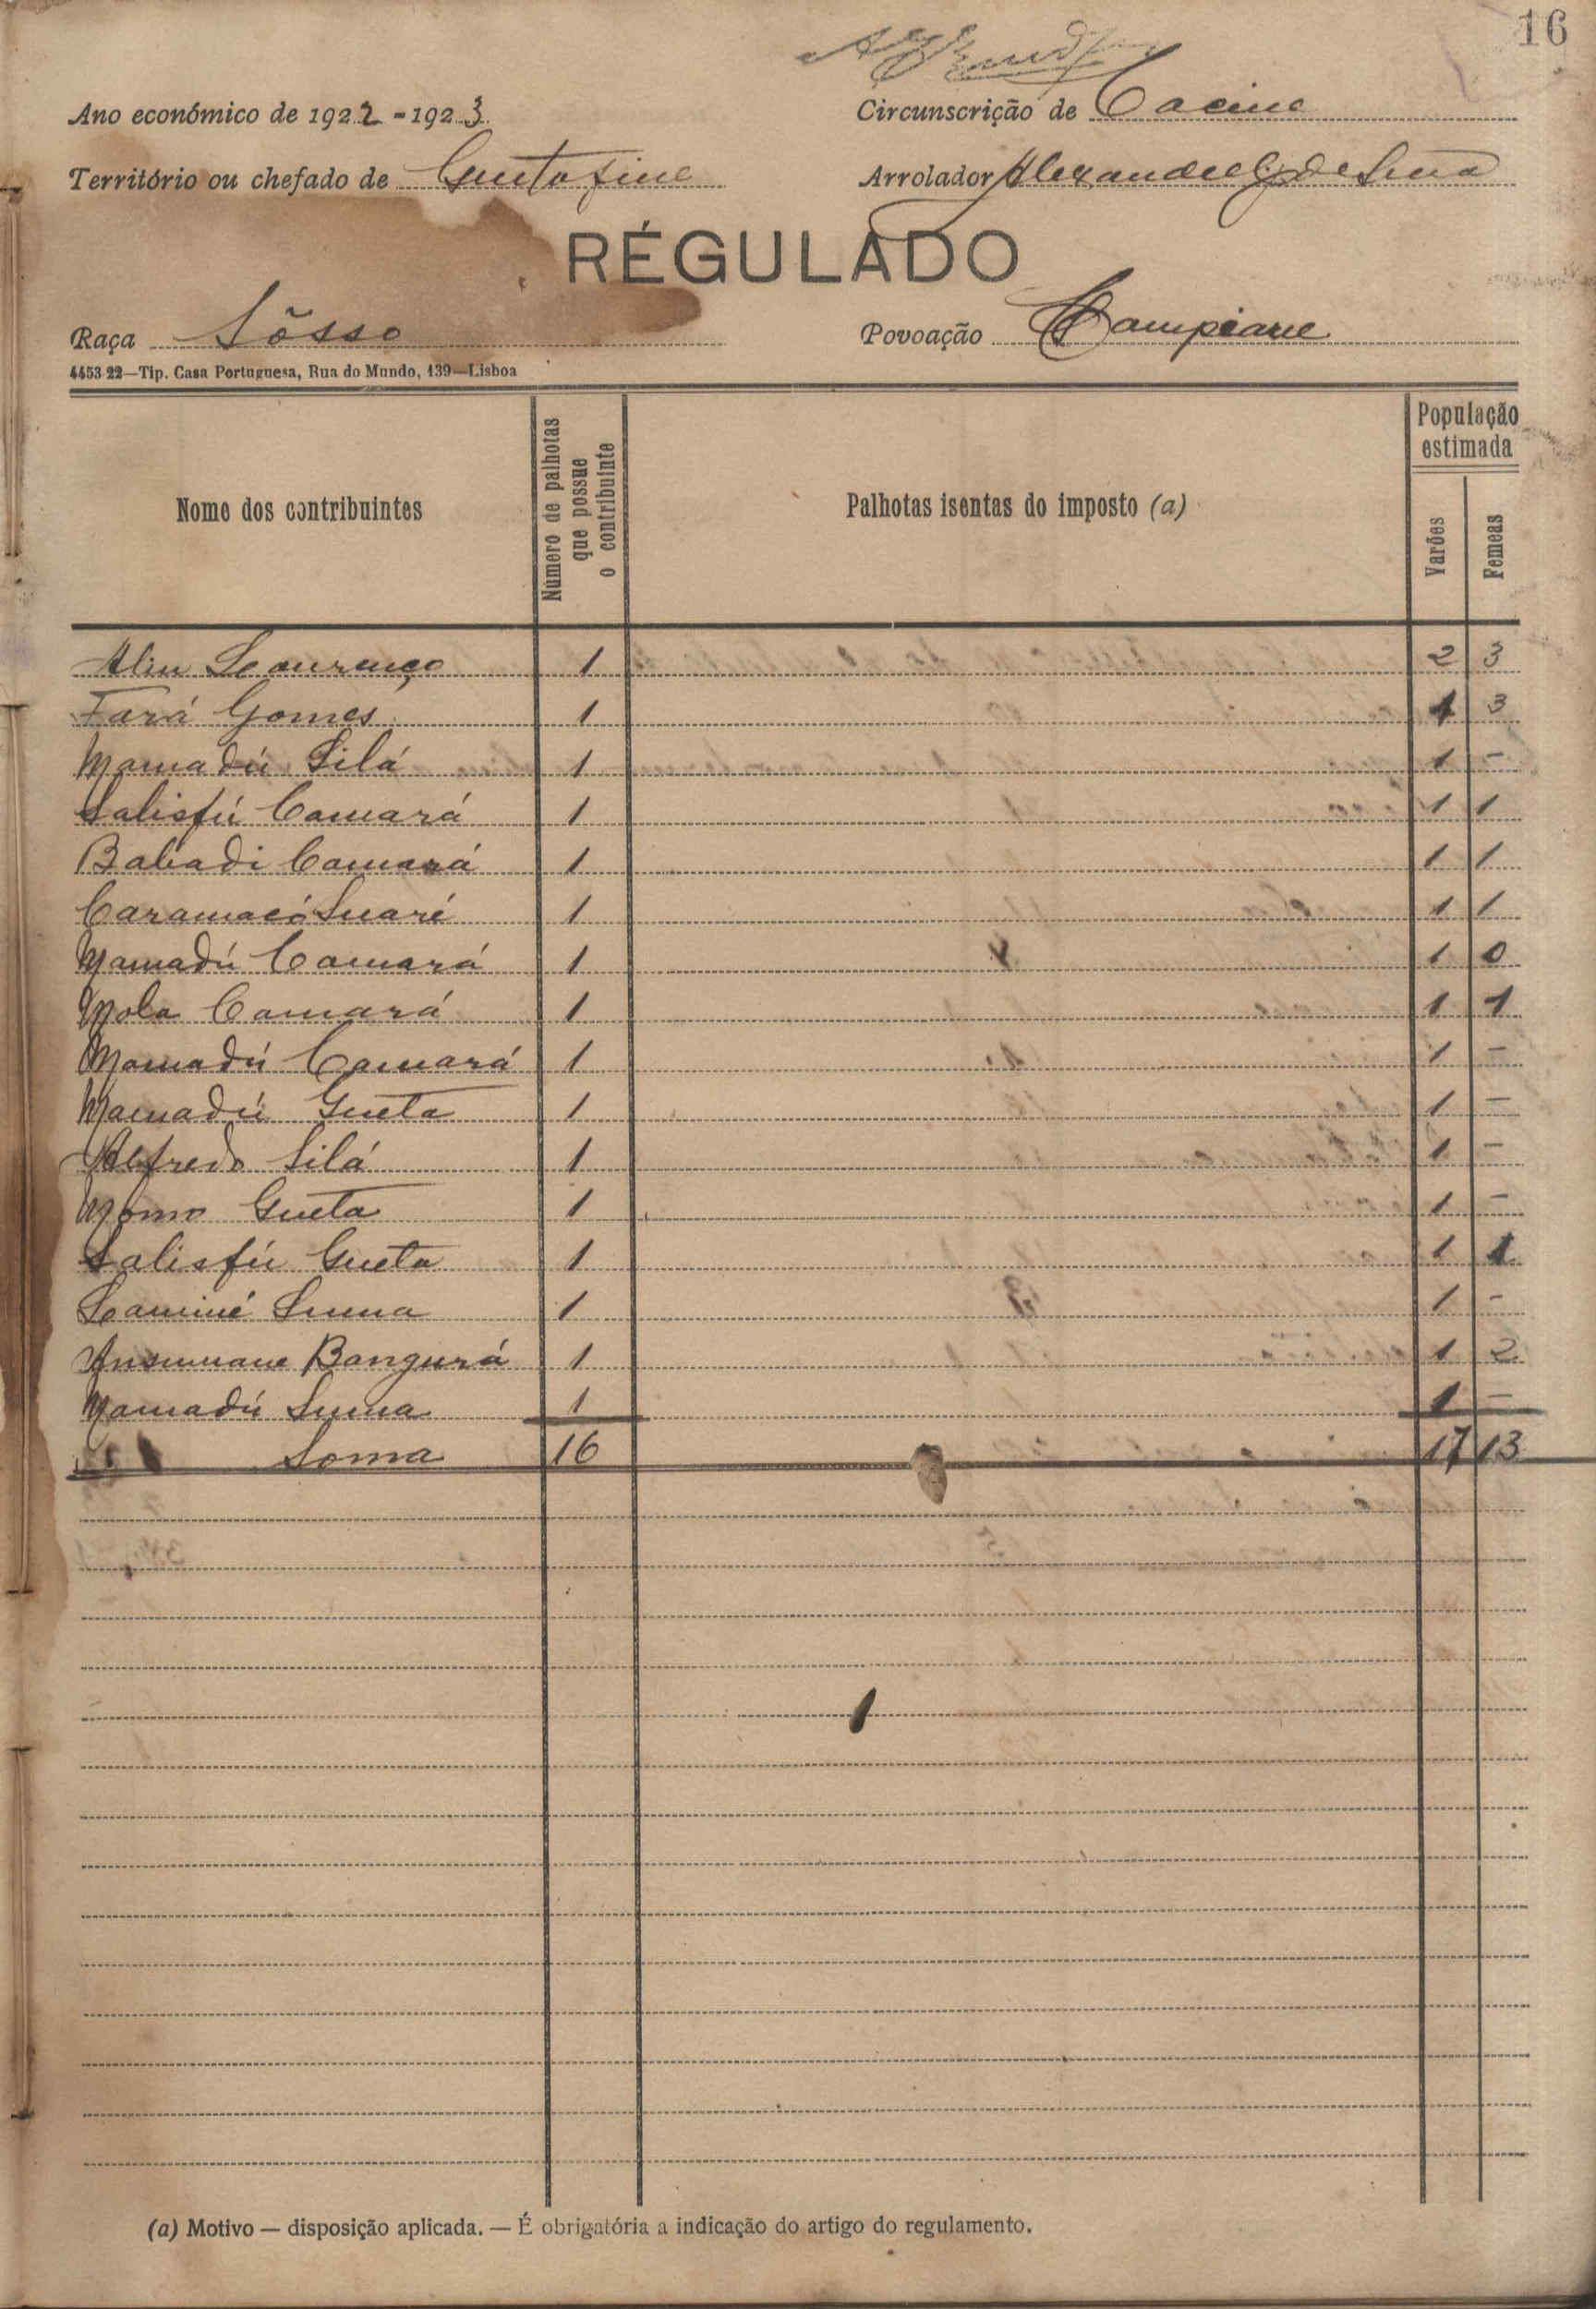 16
Ano económico de 1922-1923
Circunscrição de Cacine
Território ou chefado de Guitafine
Arrolador Alexandre G. de Sena
RÉGULADO
Raça Sôsso
Povoação Campeane
4453-22—Tip. Casa Portuguesa, Rua do Mundo, 139—Lisboa
Nome dos contribuintes
Número de palhotas que possue o contribuinte
Palhotas isentas do imposto (a)
População estimada
Varões
Femeas
Aliu Lourenço 1 2 3
Fará Gomes 1 1 3
Mamadú Silá 1 1 -
Salisfú Camará 1 1 1
Babadi Camará 1 1 1
Caramacó Suaré 1 1 1
Mamadú Camará 1 1 0
Mola Camará 1 1 1
Mamadú Camará 1 1 -
Mamadú Gueta 1 1 -
Alfredo Silá 1 1 -
Momo Gueta 1 1 -
Salisfú Gueta 1 1 1
Laminé Suma 1 1 -
Ansumane Bangurá 1 1 2
Mamadú Suma 1 1 -
Soma 16 17 13
(a) Motivo — disposição aplicada. — É obrigatória a indicação do artigo do regulamento.